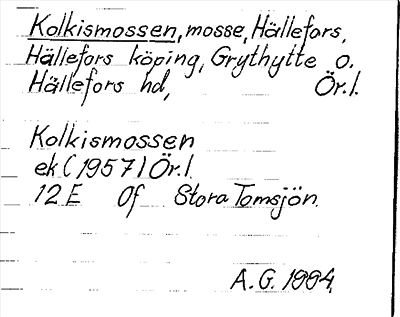 Kolkismossen, mosse, Hällefors,
Hällefors köping, Grythytte o.
Hällefors hd, Ör.l.
Kolkismossen
ek (1957) Ör.l.
12 E 0f Stora Tomsjön.
A.G. 1994